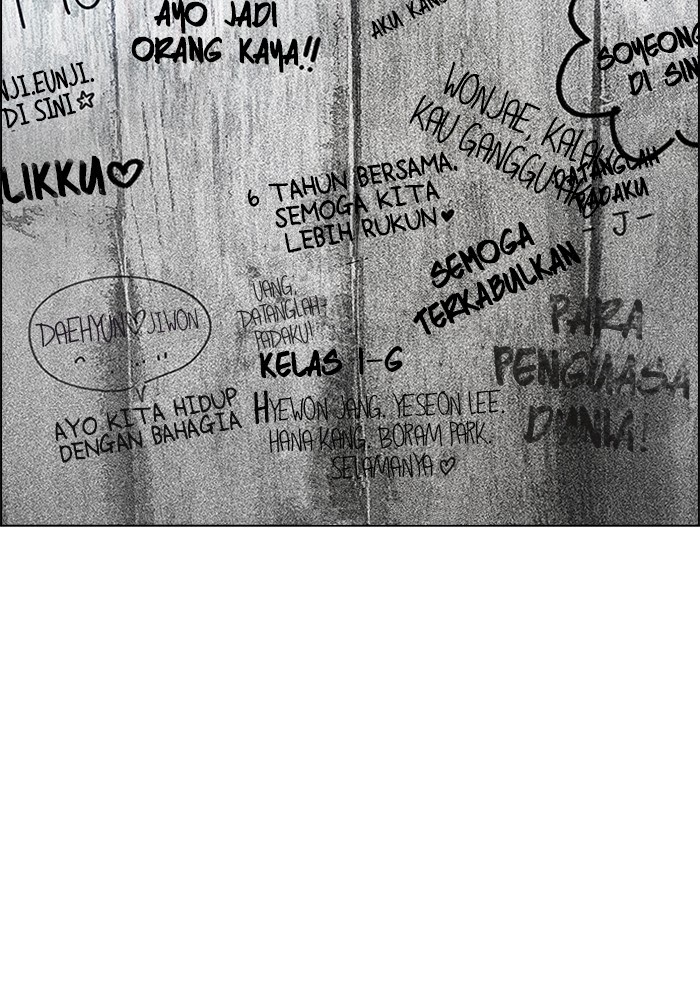 AYO JADI
ORANG KAYA!!
EUNJI.
DI SINI☆
LIKKU♡
AKU
SOYEONG
DI SINI
WONJAE, KALAU
KAU GANGGU AKU
6 TAHUN BERSAMA.
SEMOGA KITA
LEBIH RUKUN♥
DATANGLAH
PADAKU
- J -
SEMOGA
TERKABULKAN
DAEHYUN♡JIWON
UANG,
DATANGLAH
PADAKU!
PARA
PENGUASA
DUNIA!
KELAS 1-6
HYEWON JANG. YESEON LEE.
HANA KANG. BORAM PARK.
SELAMANYA♡
AYO KITA HIDUP
DENGAN BAHAGIA